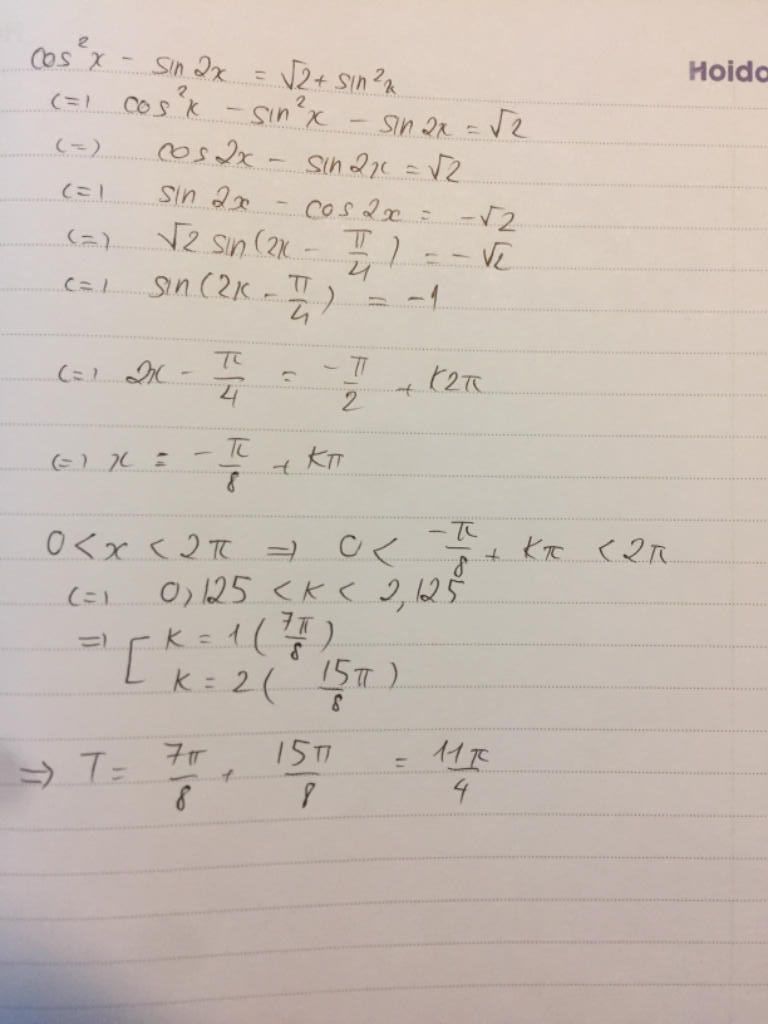 Hoido
cos²x - sin 2x = √2 + sin²x
(=) cos²x - sin²x - sin 2x = √2
(=) cos2x - sin 2x = √2
(=) sin 2x - cos 2x = -√2
(=) √2 sin(2x - π/4) = -√2
(=) sin(2x - π/4) = -1
(=) 2x - π/4 = -π/2 + K2π
(=) x = -π/8 + Kπ
0 < x < 2π => 0 < -π/8 + Kπ < 2π
(=) 0,125 < K < 2,125
=> [ K = 1 (7π/8)
K = 2 (15π/8)
=> T = 7π/8 + 15π/8 = 11π/4